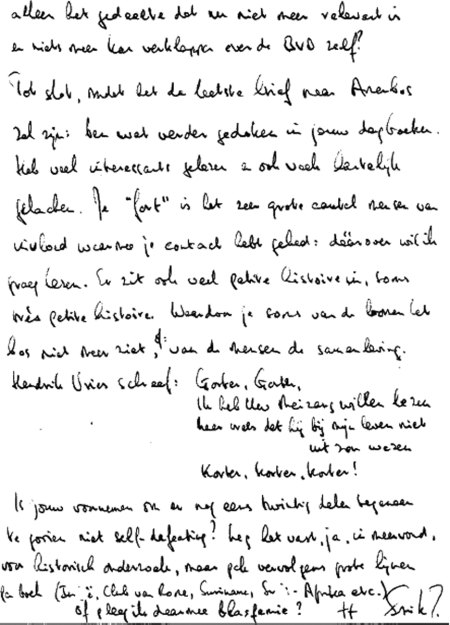 alleen het gedeelte dat nu niet meer relevant is
en niets meer kan verklappen over de BVD zelf?
Tot slot, omdat het de laatste brief naar Arenbos
zal zijn: ben wat verder gedoken in jouw dagboeken.
Heb veel interessants gelezen en ook vaak hartelijk
gelachen. Je "fort" is het zeer grote aantal mensen van
invloed waarmee je contact hebt gehad: dáárover wil ik
graag lezen. Er zit ook veel petite histoire in, soms
très petite histoire. Waardoor je soms van de bomen het
bos niet meer ziet, of: van de mensen de samenleving.
Hendrik Vries schreef: Gorter, Gorter,
Ik heb Uw Mei zang willen lezen
maar vrees dat hij bij mijn leven niet
uit zou wezen
Korter, korter, korter!
Is jouw voornemen om er nog eens twintig delen tegenaan
te gooien niet self-defeating? Leg het vast, ja, in meervoud,
voor historisch onderzoek, maar pak vervolgens grote lijnen
per boek (Club van Rome, Suriname, Afrika etc.)
of pleeg ik daarmee blasfemie?